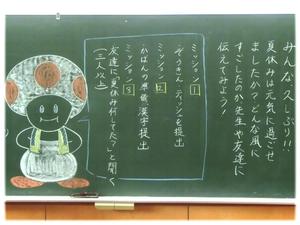 みんな久しぶり!!
夏休みは元気に過ごせ
ましたか?どんな風に
すごしたのか先生や友達に
伝えてみよう!
ミッション1
「ぞうきん・ティッシュ」を提出
ミッション2
かばんの準備、漢字提出
ミッション3
友達に「夏休み何してた?」と聞く
(三人以上)